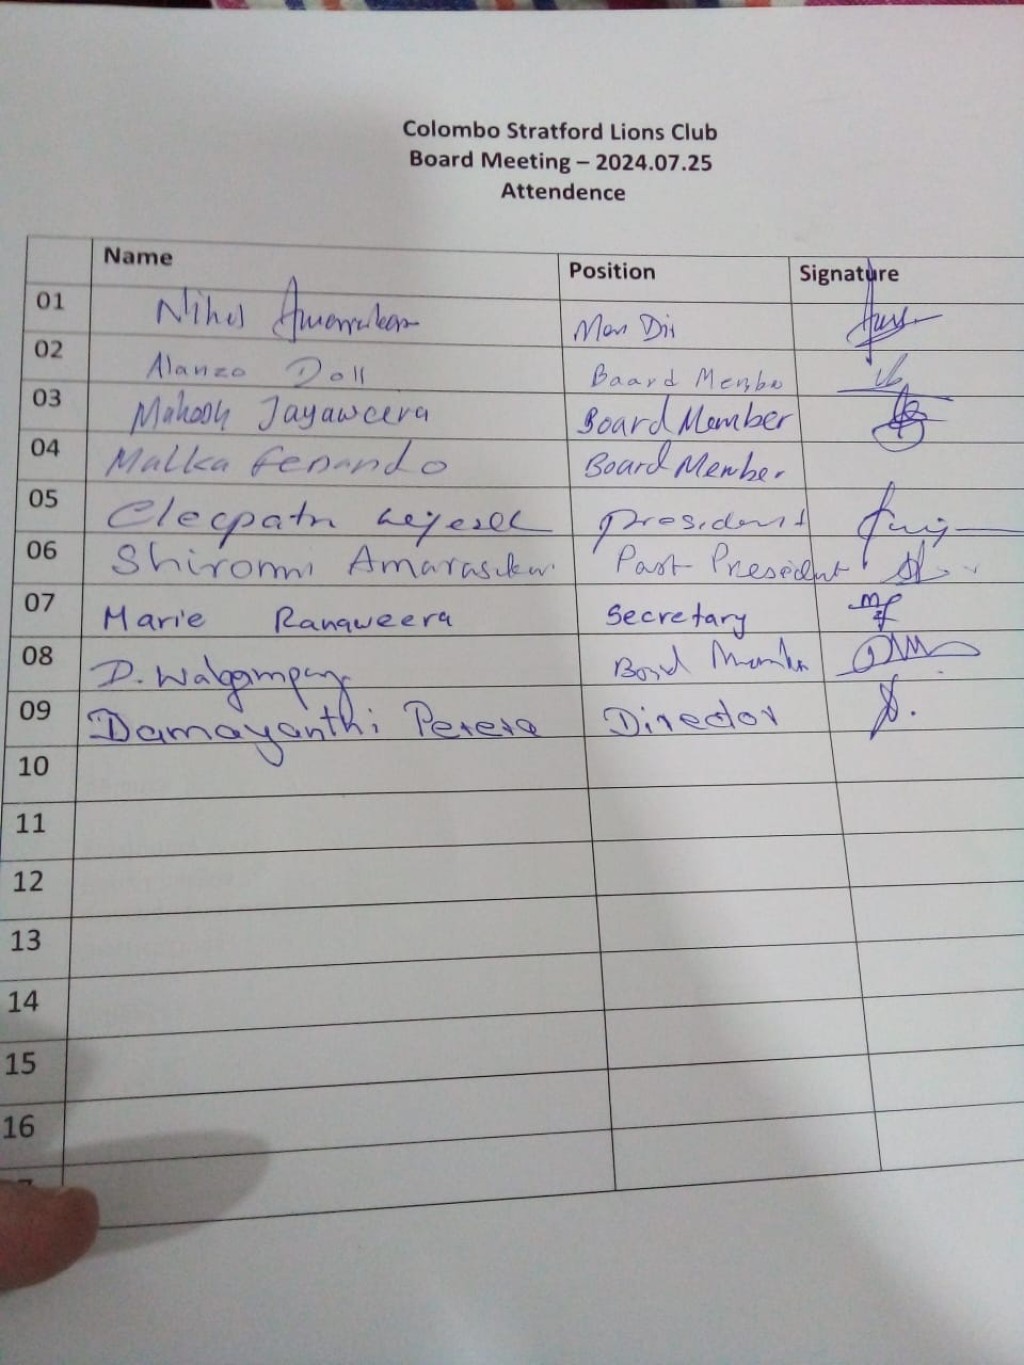 Colombo Stratford Lions Club
Board Meeting – 2024.07.25
Attendence
Name Position Signature
01 Nihal Man Dir
02 Alanzo Doll Board Membe
03 Mahosh Jayaweera Board Member
04 Malka Fenando Board Member
05 president
06 Shiromi Amarasekar Past President
07 Marie Ranaweera Secretary
08 D. Board
09 Damayanthi Perera Director
10
11
12
13
14
15
16